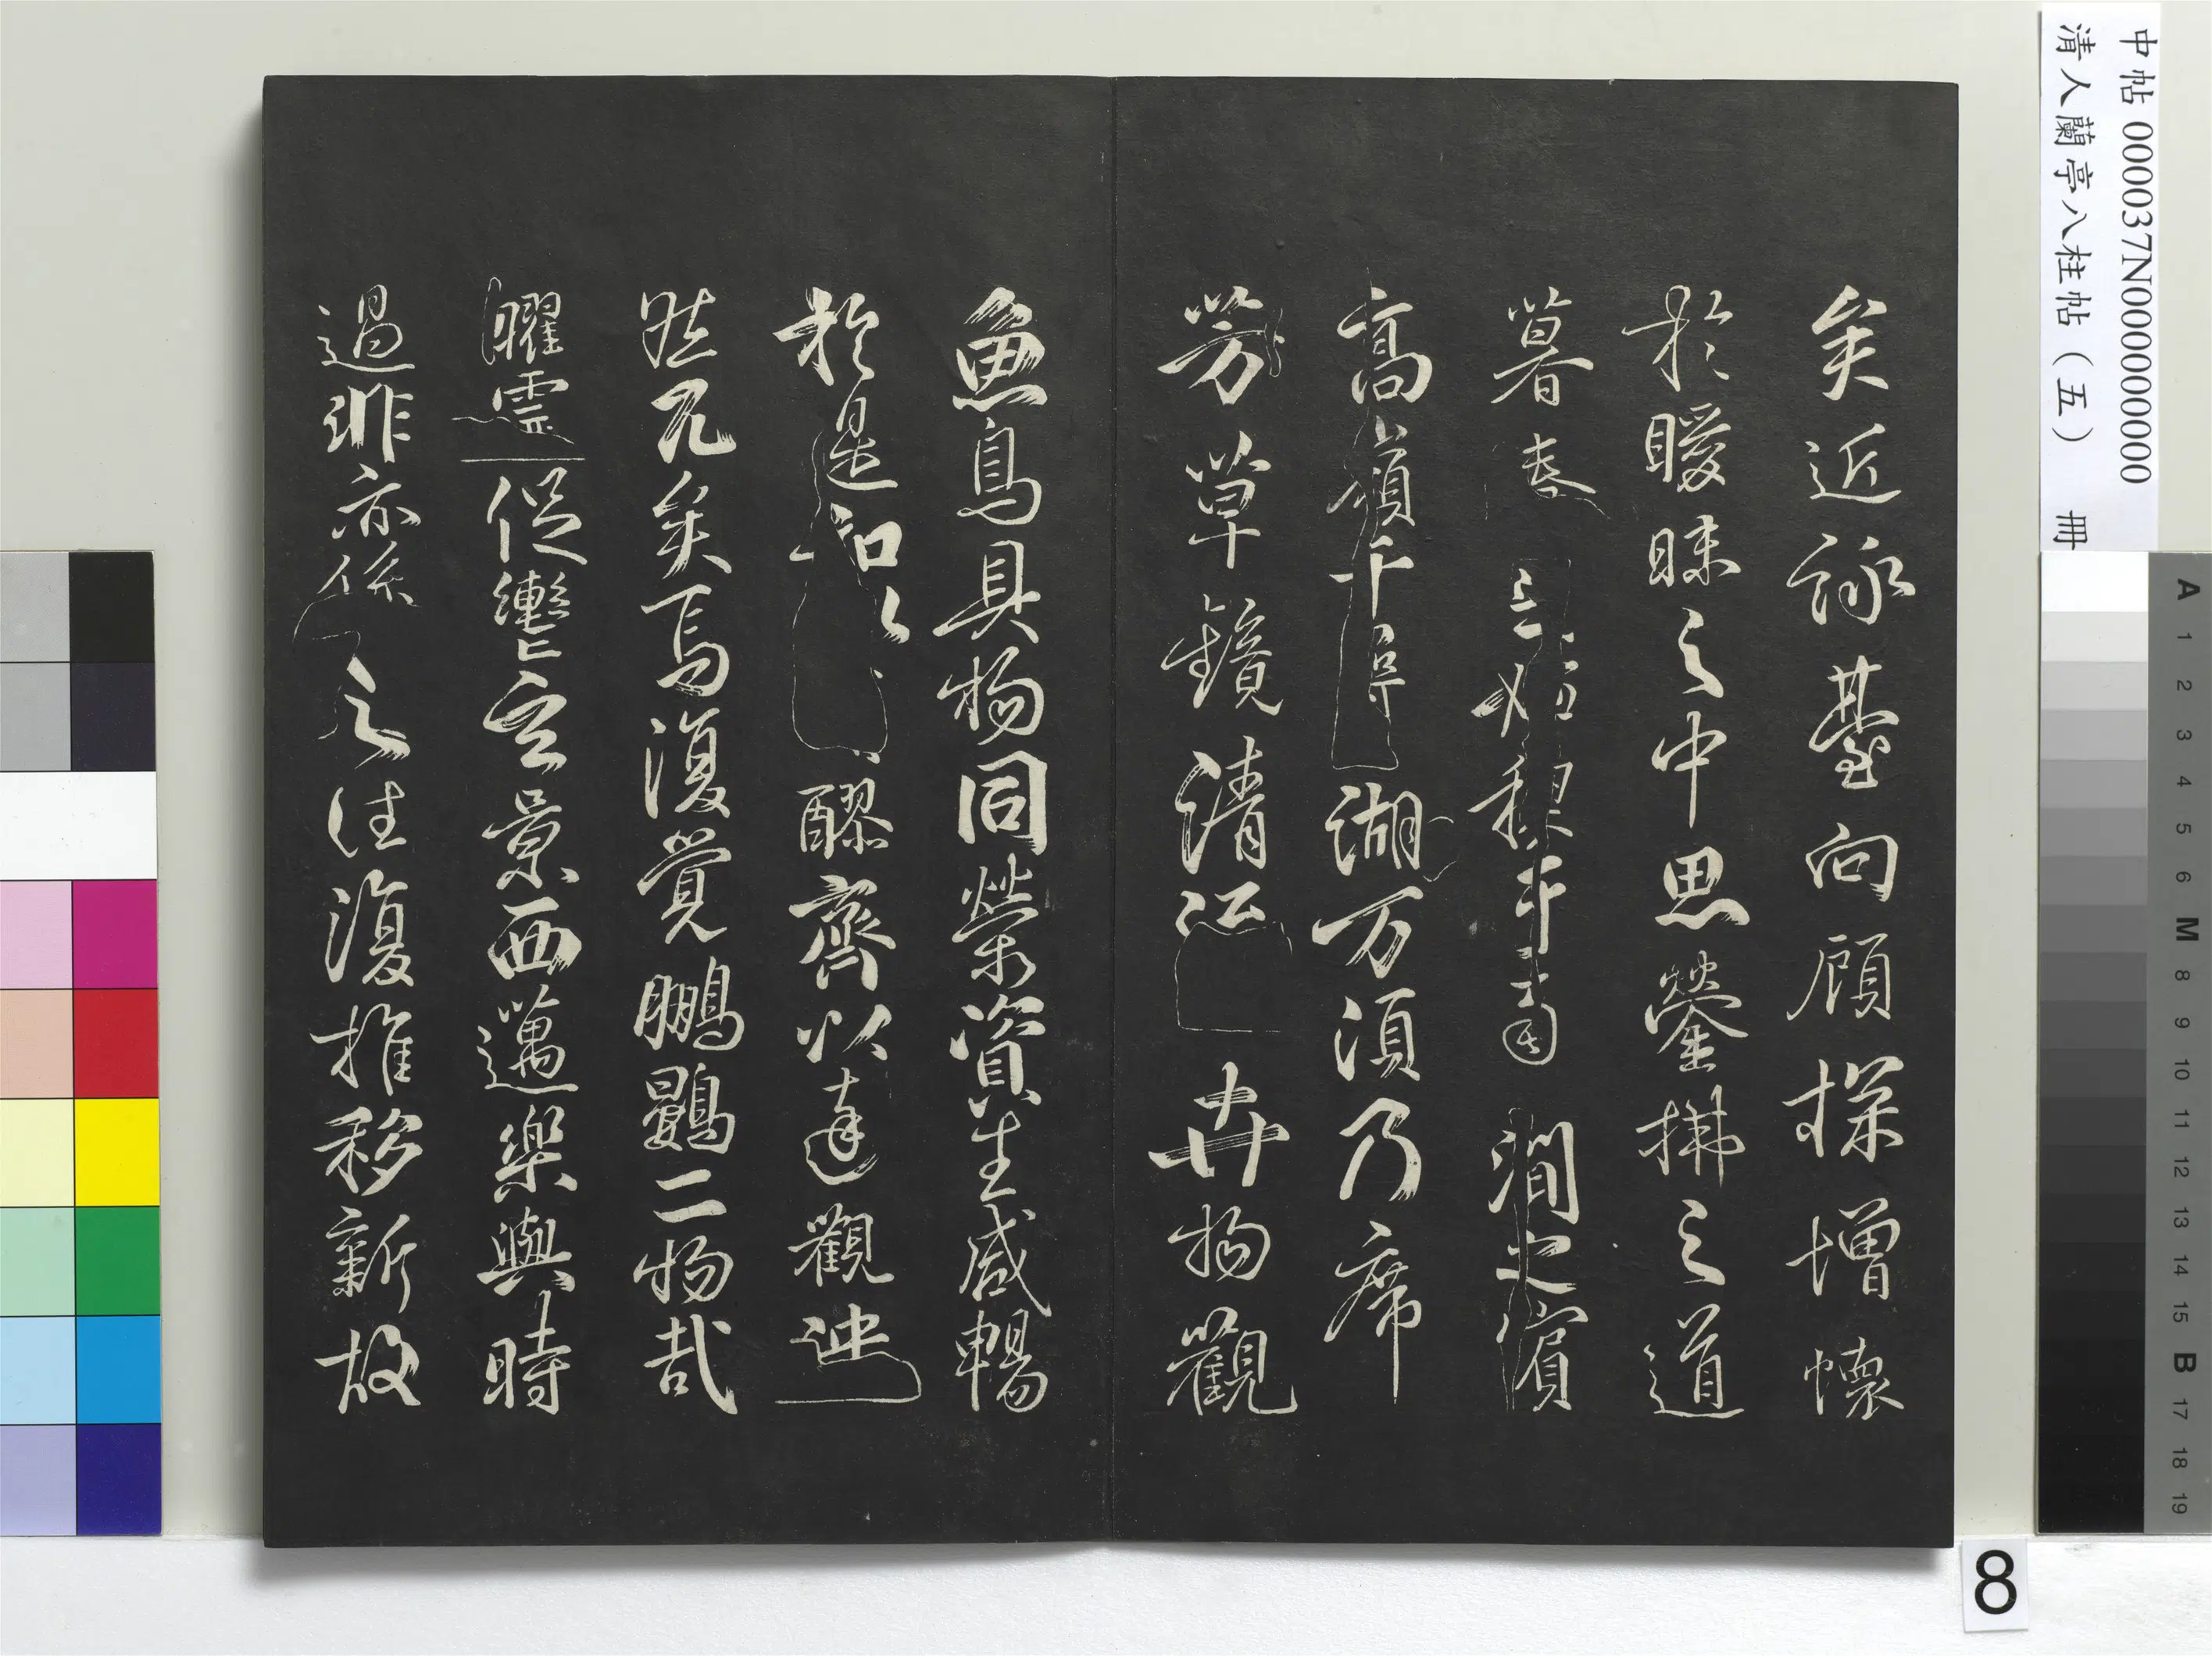 中帖 000037N000000000
清人蘭亭八柱帖（五） 冊
矣近詠臺向顧探增懷
於曖昧之中思鎣拂之道
暮春 禊于南澗之濱
高嶺千尋湖万須乃席
芳草鏡清江卉物觀
魚鳥具物同榮資生咸暢
於是和以醪齊以達觀泱
然兀矣焉復覺鵬鷃二物哉
曜靈促轡玄景西邁樂與時
過悲亦係之往復推移新故
A 1 2 3 4 5 6 M 8 9 10 11 12 13 14 15 B 17 18 19
8